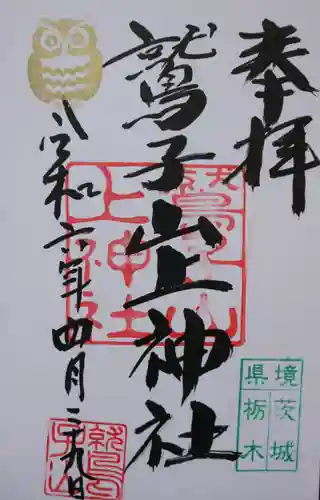 奉拝
鷲子山上神社
令和六年四月二十九日
鷲子山
上神社
境 茨城
県 栃木